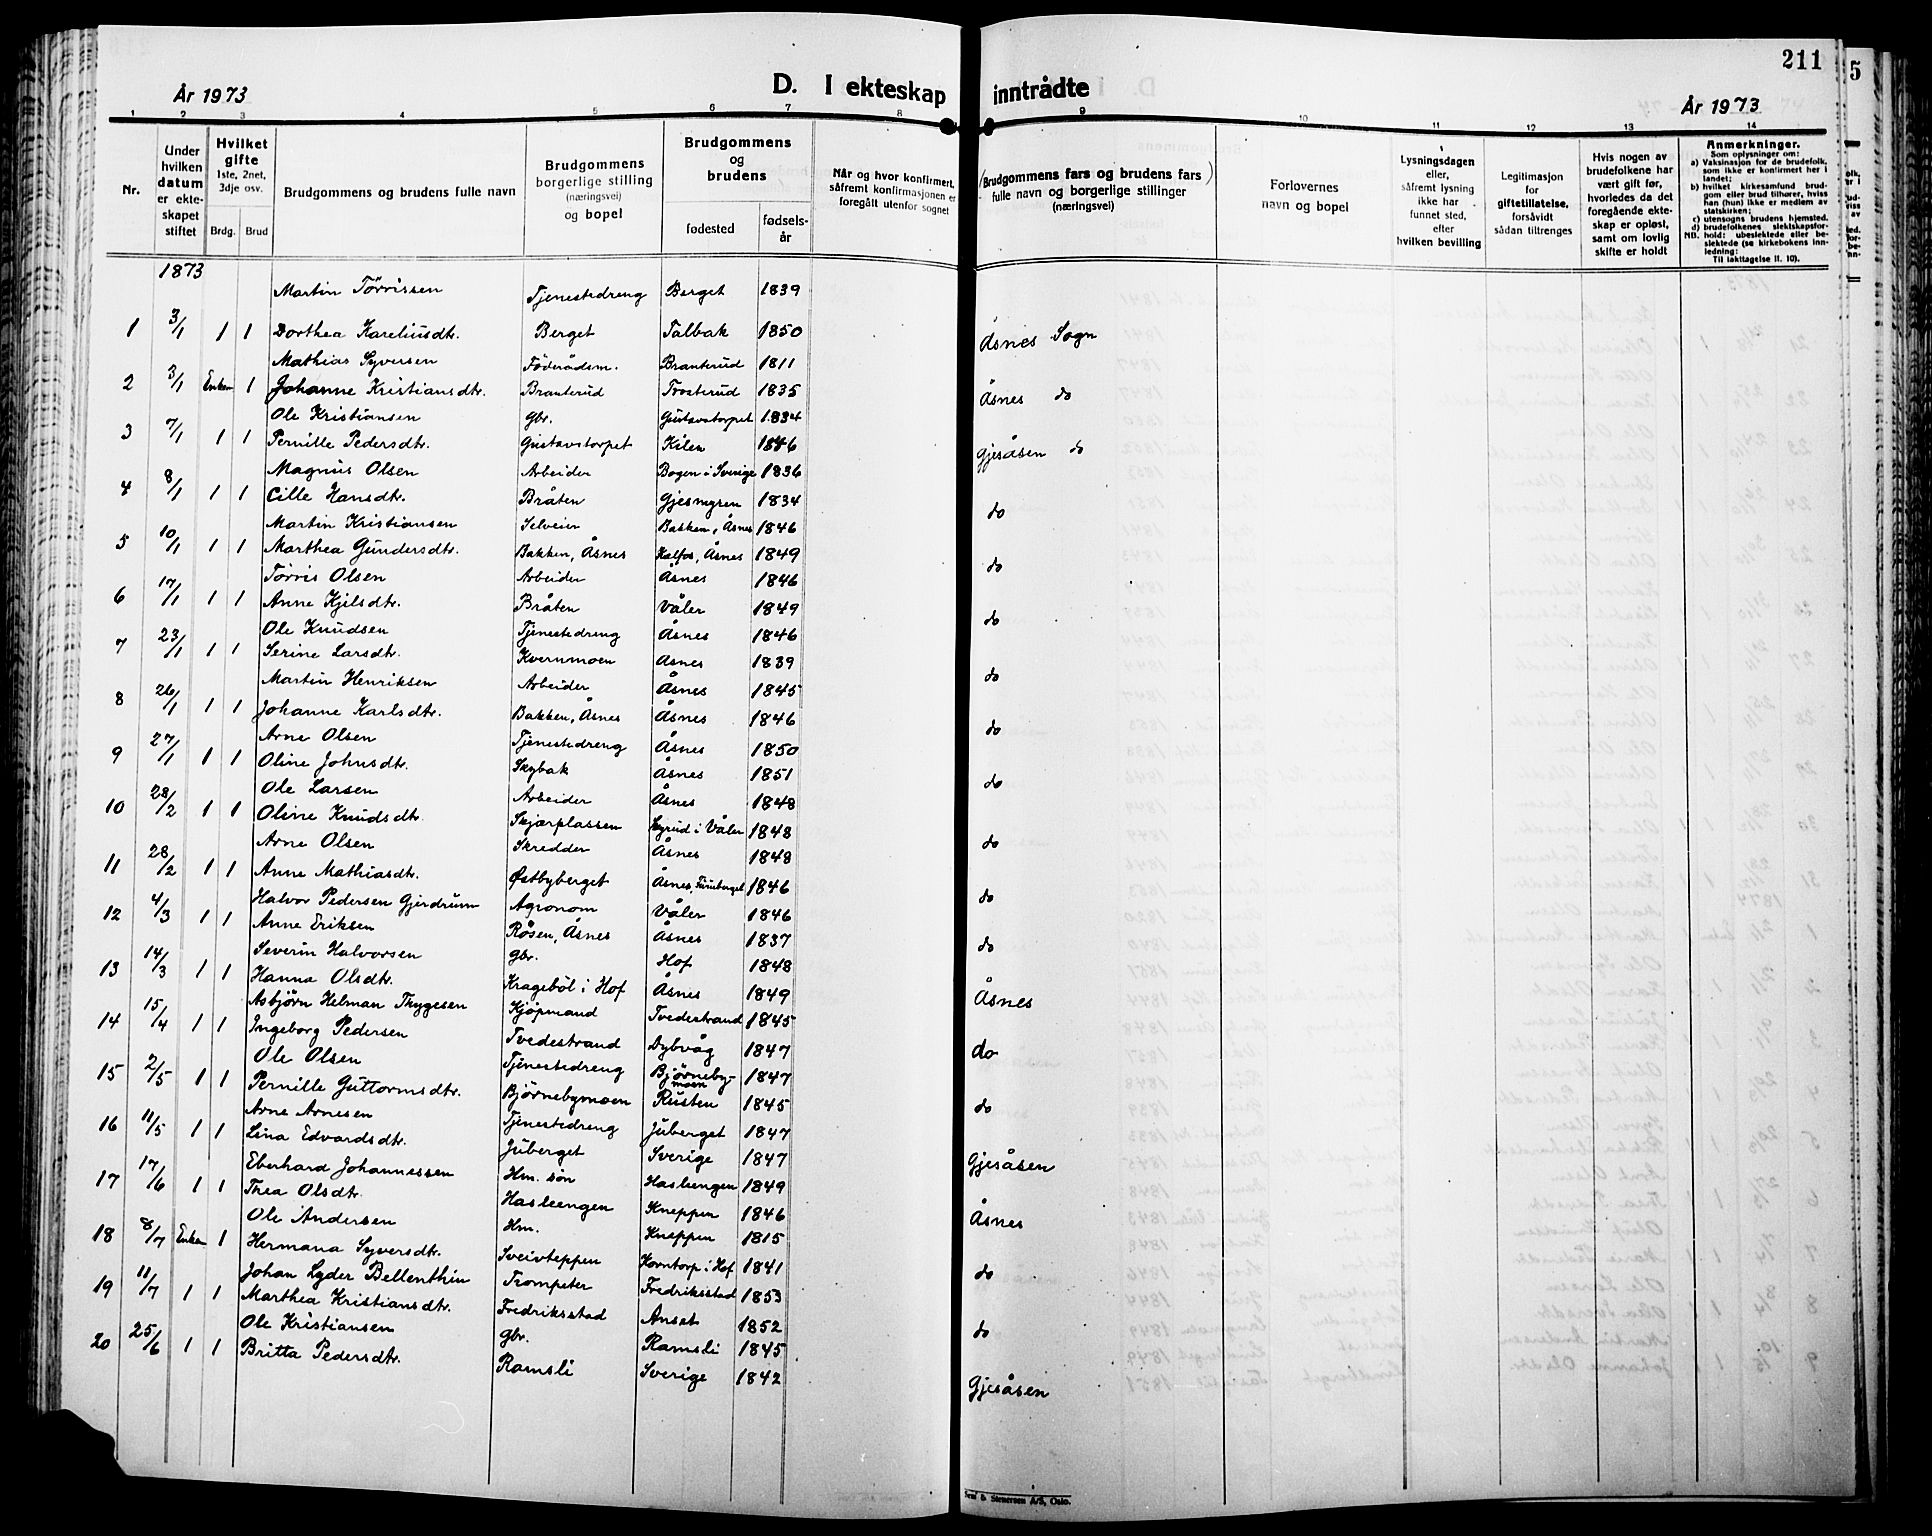 D. I ekteskap inntrådte
211
År 1973
År 1973
1 2 3 4 5 6 7 8 9 10 11 12 13 14
Nr.
Under hvilken datum er ekteskapet stiftet
Hvilket gifte 1ste, 2net, 3dje osv.
Brdg. Brud
Brudgommens og brudens fulle navn
Brudgommens borgerlige stilling (næringsvei) og bopel
Brudgommens og brudens
fødested
fødselsår
Når og hvor konfirmert, såfremt konfirmasjonen er foregått utenfor sognet
(Brudgommens fars og brudens fars) fulle navn og borgerlige stillinger (næringsvei)
Forlovernes navn og bopel
Lysningsdagen eller, såfremt lysning ikke har funnet sted, efter hvilken bevilling
Legitimasjon for giftetillatelse, forsåvidt sådan tiltrenges
Hvis nogen av brudefolkene har vært gift før, hvorledes da det foregående ekteskap er opløst, samt om lovlig skifte er holdt
Anmerkninger.
Som oplysninger om:
a) Vaksinasjon for de brudefolk, som ikke er konfirmert her i landet;
b) hvilket kirkesamfund brudgom eller brud tilhører, hviss han (hun) ikke er medlem av statskirken;
c) utensogns brudens hjemsted.
d) brudefolkenes slektskapsforhold: ubeslektede eller beslektede (se kirkebokens innledning;
NB.
Til iakttagelse II. 10).
1873
Martin Tørrissen Tjenestedreng Berget 1839
1 3/1 1 1 Dorthea Kareliusdtr. Berget Talbak 1850 Åsnes Sogn
Mathias Syversen Föderådsm. Branterud 1811
2 3/1 Enkem 1 Johanne Kristiansdtr. Branterud Trosterud 1835 Åsnes do
Ole Kristiansen Gbr. Gustavstorpet 1834
3 7/1 1 1 Pernille Pedersdtr. Gustavstorpet Kilen 1846 Gjesåsen do
Magnus Olsen Arbeider Bogen i Sverige 1836
4 8/1 1 1 Cille Hansdtr. Bråten Gjesmyren 1834 do
Martin Kristiansen Selveier Bakken, Åsnes 1846
5 10/1 1 1 Marthea Gundersdtr. Bakken, Åsnes Kalfos, Åsnes 1849 do
Tørris Olsen Arbeider Åsnes 1846
6 17/1 1 1 Anne Kjilsdtr. Bråten Våler 1849 do
Ole Knudsen Tjenestedreng Åsnes 1846
7 23/1 1 1 Serine Larsdtr. Kvernmoen Åsnes 1839 do
Martin Henriksen Arbeider Åsnes 1845
8 26/1 1 1 Johanne Karlsdtr. Bakken, Åsnes Åsnes 1846 do
Arne Olsen Tjenestedreng Åsnes 1850
9 27/1 1 1 Oline Johnsdtr. Skybak Åsnes 1851 do
Ole Larsen Arbeider Åsnes 1848
10 28/2 1 1 Oline Knudsdtr. Skjærplassen Skyrud i Våler 1848 do
Arne Olsen Skredder Åsnes 1848
11 28/2 1 1 Anne Mathiasdtr. Østbyberget Åsnes, Finberget 1846 do
Halvor Pedersen Gjerdrum Agronom Våler 1846
12 4/3 1 1 Anne Eriksen Råsen, Åsnes Åsnes 1837 do
Severin Halvorsen Gbr. Hof 1848
13 14/3 1 1 Hanna Olsdtr. Krageböl i Hof Åsnes 1849 Åsnes
Asbjørn Helman Thygesen Kjöpmand Tvedestrand 1845
14 15/4 1 1 Ingeborg Pedersen Tvedestrand Dybvåg 1847 do
Ole Olsen Tjenestedreng Bjørnebymoen 1847
15 2/5 1 1 Pernille Guttormsdtr. Björnebymoen Rusten 1845 do
Arne Arnesen Tjenestedreng Juberget 1847
16 11/5 1 1 Lina Edvardsdtr. Juberget Sverige 1847 Gjesåsen
Eberhard Johannessen Hm. søn Hasleengen 1849
17 17/6 1 1 Thea Olsdtr. Hasleengen Kneppen 1846 Åsnes
Ole Andersen Hm. Kneppen 1815
18 8/7 Enkem 1 Hermana Syversdtr. Sveivteppen Korntorp i Hof 1841 do
Johan Lyder Bellenthin Trompeter Fredriksstad 1853
19 11/7 1 1 Marthea Kristiansdtr. Fredriksstad Anset 1852 do
Ole Kristiansen Gbr. Ramsli 1845
20 25/6 1 1 Britta Pedersdtr. Ramsli Sverige 1842 Gjesåsen
& Stenersen A/S, Oslo.
5